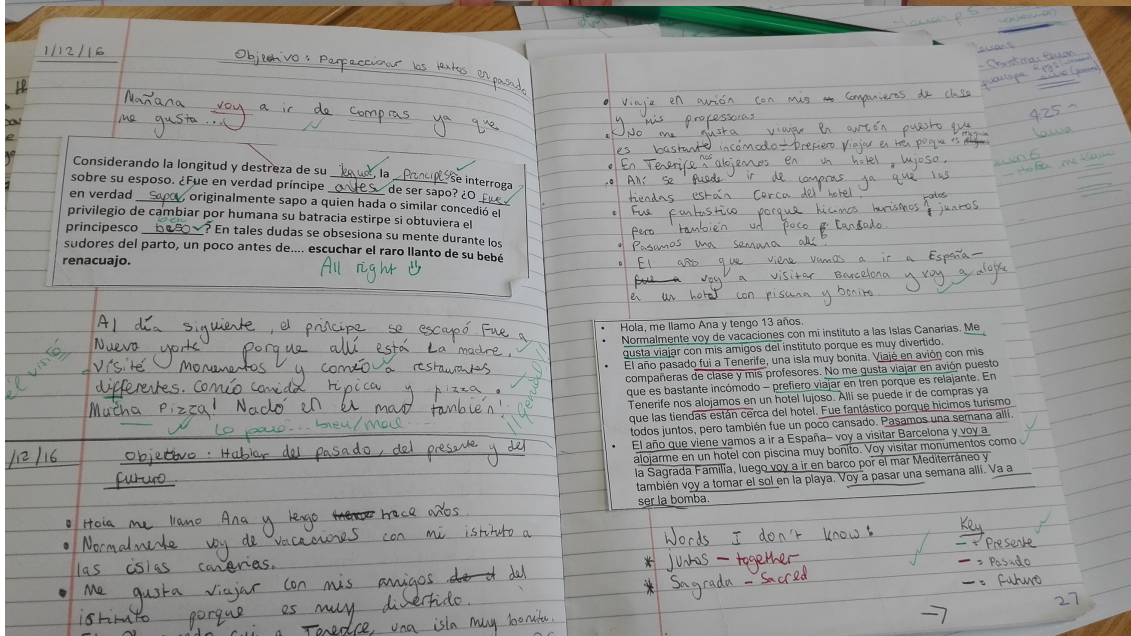 1/12/16
Objetivo: Perfeccionar los textos en pasado
Mañana voy a ir de compras ya que
me gusta...
Considerando la longitud y destreza de su lengua, la princesa se interroga
sobre su esposo. ¿Fue en verdad príncipe antes de ser sapo? ¿O fue
en verdad sapo, originalmente sapo a quien hada o similar concedió el
privilegio de cambiar por humana su batracia estirpe si obtuviera el
principesco beso? En tales dudas se obsesiona su mente durante los
sudores del parto, un poco antes de.... escuchar el raro llanto de su bebé
renacuajo.
All right
Al día siguiente, el príncipe se escapó. Fue a
Nueva yorke porque allí está la madre.
Visité monumentos y comío a restaurantes
differentes. Comío comida tipica y pizza.
Mucha Pizza! Nadó en el mar también!
el visitó
Lo pasó... bien/mal...
/12/16
Objetivo: Hablar del pasado, del presente y del
futuro
Hola me llamo Ana y tengo trece años.
Normalmente voy de vacaciones con mi istituto a
las islas canerias.
Me gusta viajar con mis amigos del
istituto porque es muy divertido.
Tenerife, una isla muy bonita.
viaje en avión con mis companieros de clase
y mis professoras
No me gusta viajar en avión puesto que
es bastante incómodo - prefiero viajar en tren porque es
En Tenerife nos alojemos en un hotel lujoso.
Allí se puede ir de compras ya que las
tiendas están cerca del hotel.
Fue fantostico porque hicimos turismos todos juntos
pero también un poco cansado.
Pasamos una semana allí.
El año que viene vamos a ir a España-
voy a visitar Barcelona y voy a aloje
en un hotel con piscina y bonito.
Hola, me llamo Ana y tengo 13 años.
Normalmente voy de vacaciones con mi instituto a las Islas Canarias. Me
gusta viajar con mis amigos del instituto porque es muy divertido.
El año pasado fui a Tenerife, una isla muy bonita. Viajé en avión con mis
compañeras de clase y mis profesores. No me gusta viajar en avión puesto
que es bastante incómodo – prefiero viajar en tren porque es relajante. En
Tenerife nos alojamos en un hotel lujoso. Allí se puede ir de compras ya
que las tiendas están cerca del hotel. Fue fantástico porque hicimos turismo
todos juntos, pero también fue un poco cansado. Pasamos una semana allí.
El año que viene vamos a ir a España– voy a visitar Barcelona y voy a
alojarme en un hotel con piscina muy bonito. Voy visitar monumentos como
la Sagrada Familia, luego voy a ir en barco por el mar Mediterráneo y
también voy a tomar el sol en la playa. Voy a pasar una semana allí. Va a
ser la bomba.
Words I don't know:
* juntas - together
* Sagrada - Sacred
Key
- = Presente
- = Pasado
- = Futuro
27